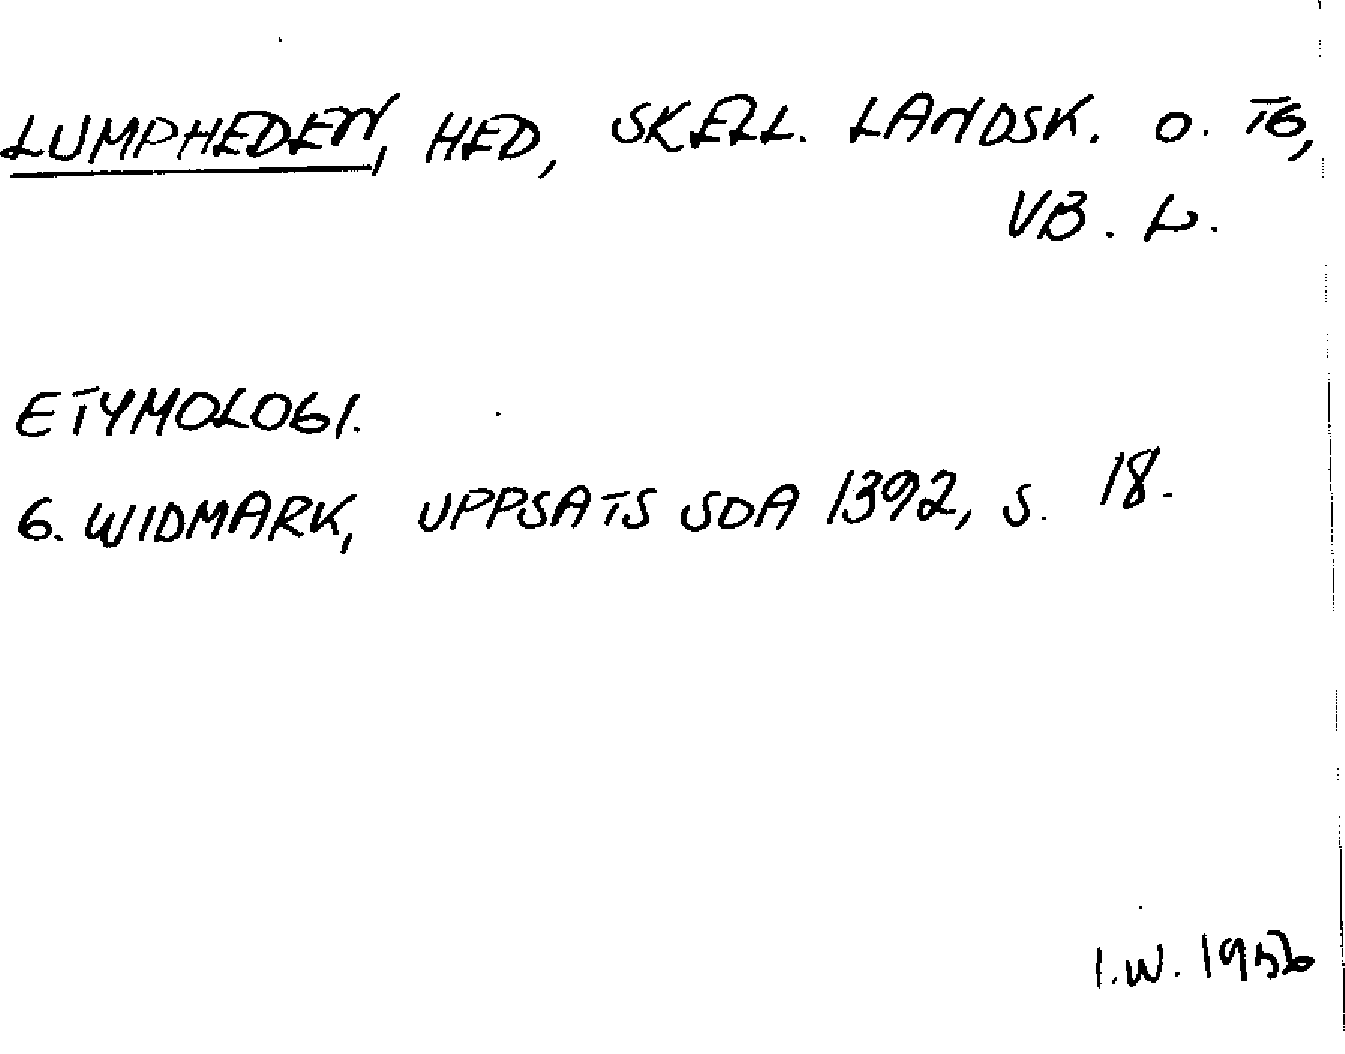 LUMPHEDEN, HED, SKELL. LANDSK. O. TG,
VB. L.
ETYMOLOGI.
G. WIDMARK, UPPSATS SOA 1392, S. 18.
I.W. 1956